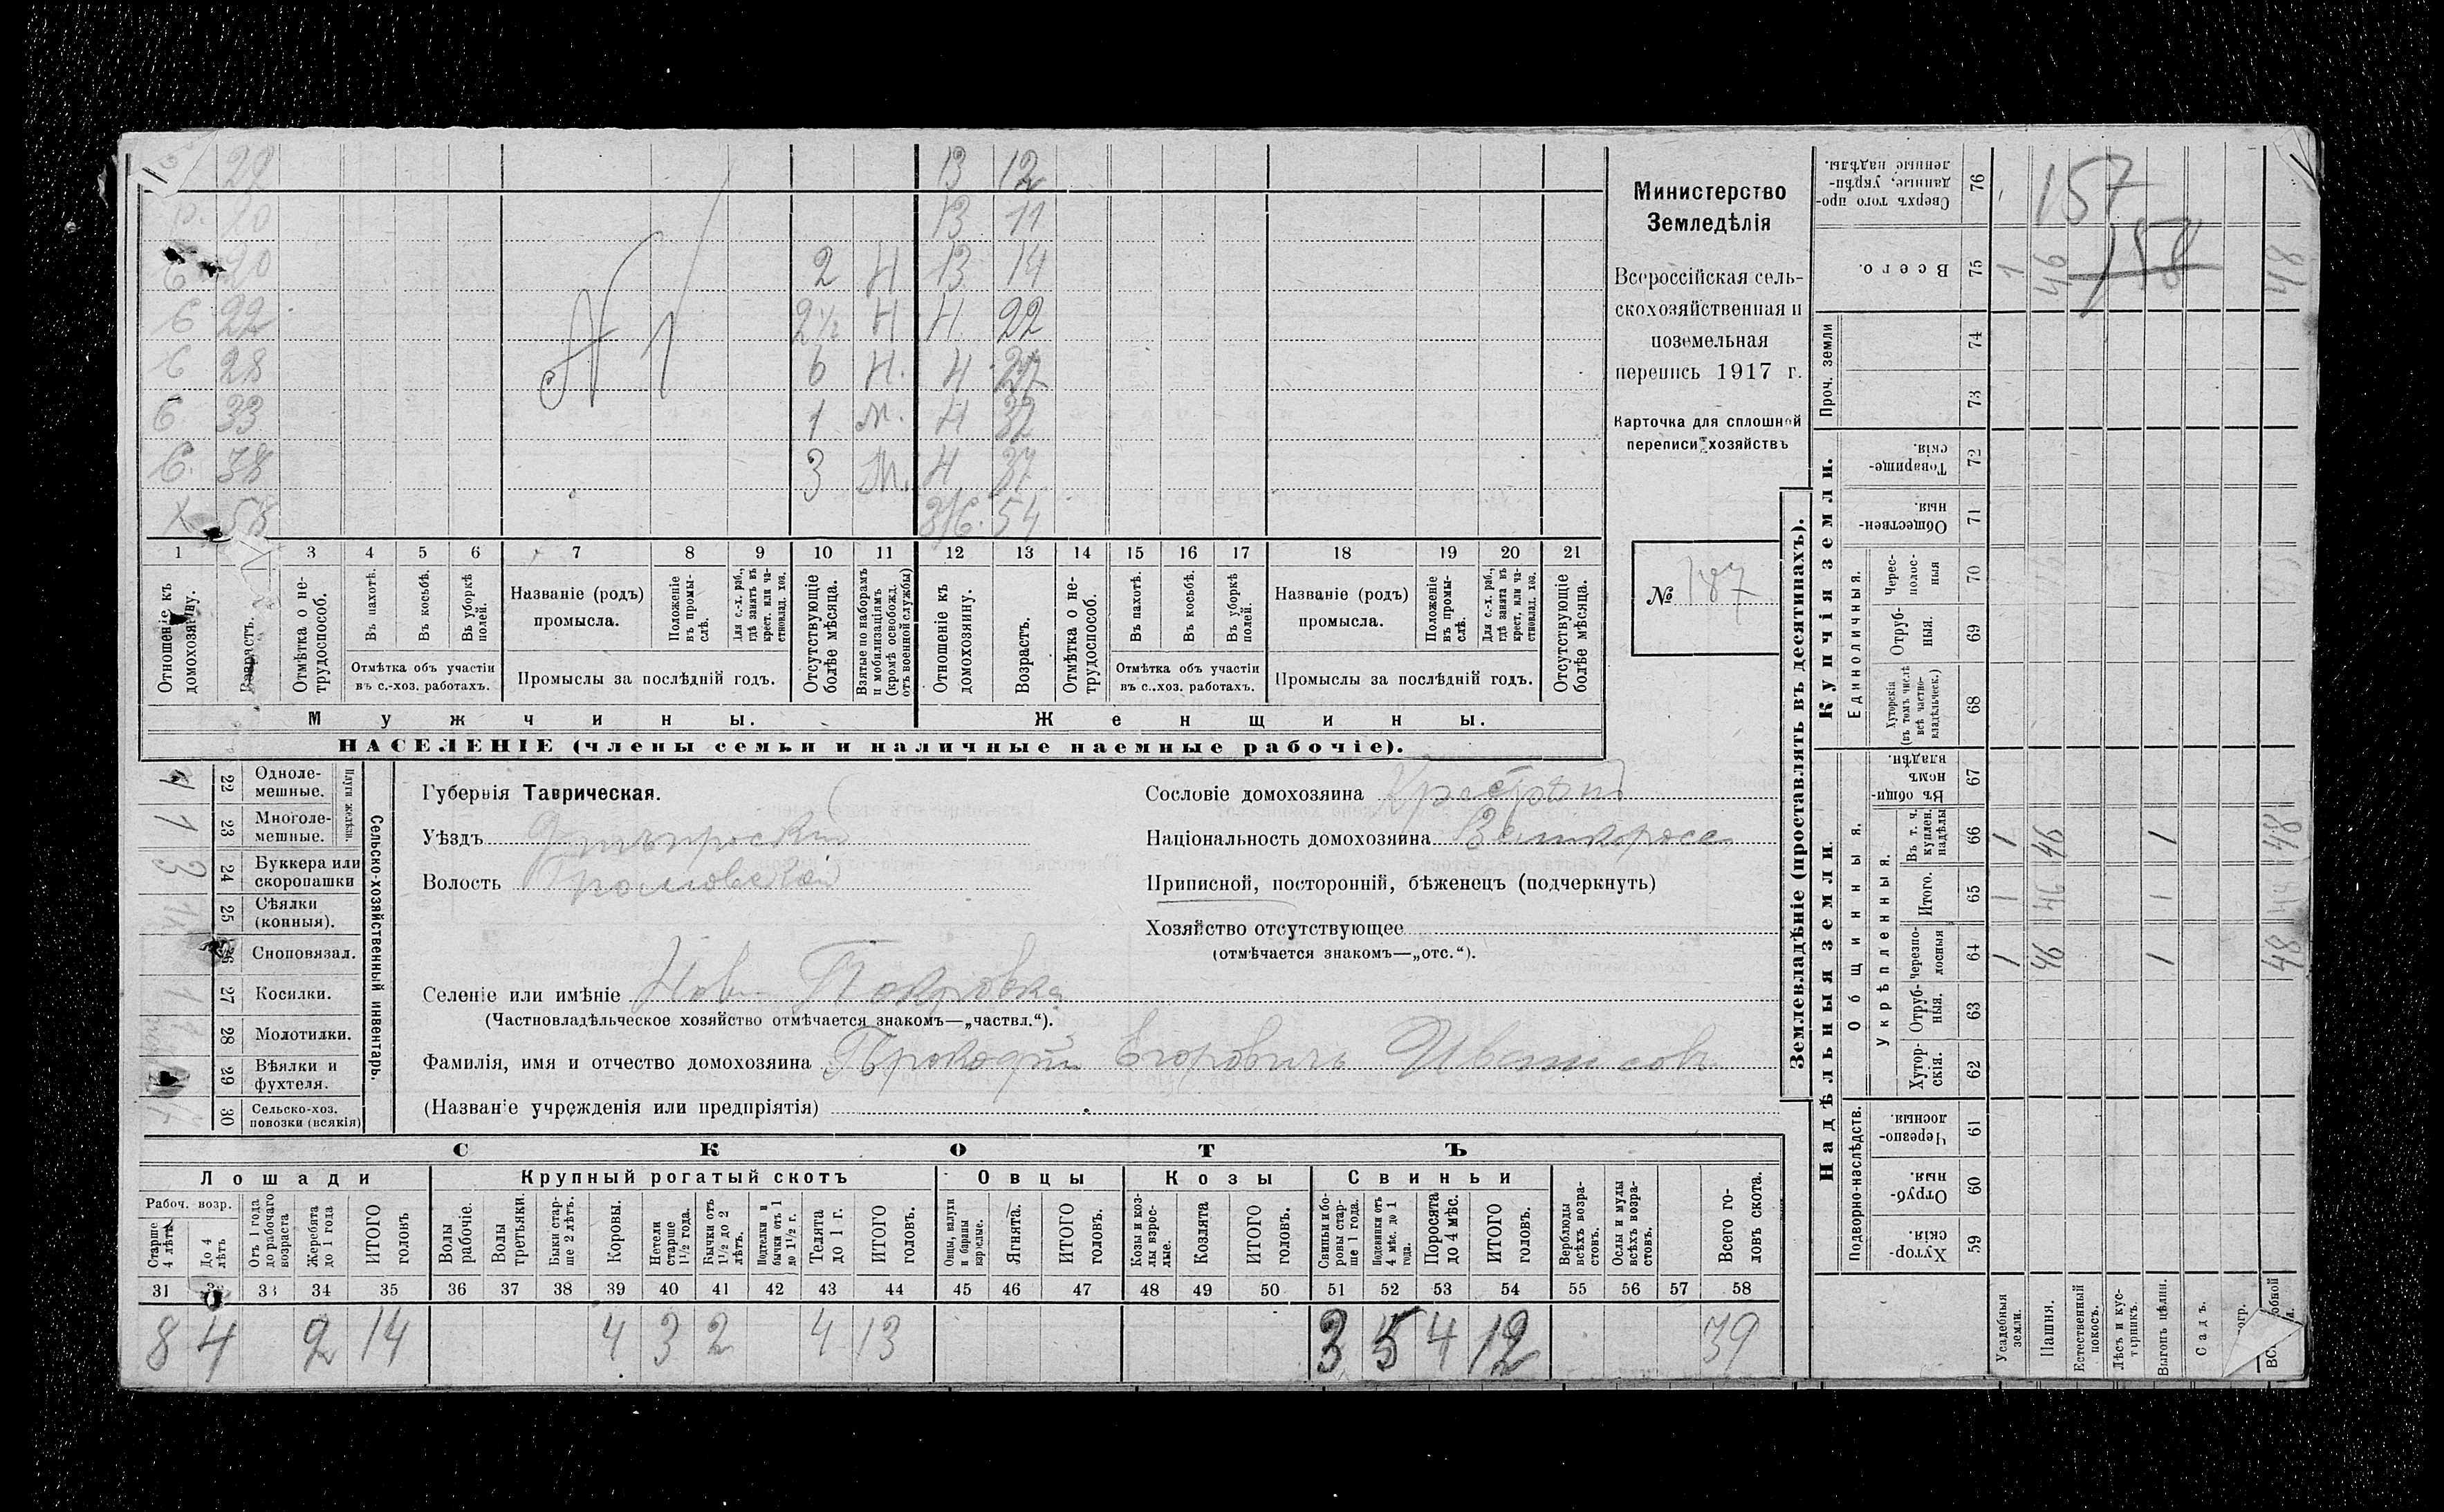 22 13 12
20 13 11
С 20 2 Н 13 14
С 22 2½ Н Н. 22
С 28 6 Н. Н 27
С 33 1 М. Н 32
С. 38 3 М. Н 37
Х 58 54
№ 1
1 3 4 5 6 7 8 9 10 11 12 13 14 15 16 17 18 19 20 21
Отношеніе къ домохозяину.
Возрастъ.
Отмѣтка о не-трудоспособ.
Въ пахотѣ.
Въ косьбѣ.
Въ уборкѣ полей.
Отмѣтка объ участіи
въ с.-хоз. работахъ.
Названіе (родъ)
промысла.
Положеніе въ промы-слѣ.
Для с.-х. раб., гдѣ занятъ въ крест. или ча-стновлад. хоз.
Промыслы за послѣдній годъ.
Отсутствующіе болѣе мѣсяца.
Взятые по наборамъ и мобилизаціямъ (кромѣ освобожд. отъ военной службы)
Отношеніе къ домохозяину.
Возрастъ.
Отмѣтка о не-трудоспособ.
Въ пахотѣ.
Въ косьбѣ.
Въ уборкѣ полей.
Отмѣтка объ участіи
въ с..хоз. работахъ.
Названіе (родъ)
промысла.
Положеніе въ промы-слѣ.
Для с.-х. раб., гдѣ занята въ крест. или ча-стновлад. хоз.
Промыслы за послѣдній годъ.
Отсутствующіе болѣе мѣсяца.
Мужчины. Женщины.
НАСЕЛЕНІЕ (члены семьи и наличные наемные рабочіе).
Министерство
Земледѣлія
Всероссійская сель-
скохозяйственная и
поземельная
перепись 1917 г.
Карточка для сплошной
переписи хозяйствъ
№ 187
Сельско-хозяйственный инвентарь.
Плуги желѣзн.
22 Одноле-мешные.
1 23 Многоле-мешные.
3 24 Буккера или скоропашки
25 Сѣялки (конныя).
26 Сноповязал.
1 27 Косилки.
28 Молотилки.
29 Вѣялки и фухтеля.
30 Сельско-хоз. повозки (всякія)
Губернія Таврическая.
Уѣздъ Днѣпровскій
Волость Громовской
Селеніе или имѣніе Нов-Покровка
(Частновладѣльческое хозяйство отмѣчается знакомъ—„частвл.“).
Фамилія, имя и отчество домохозяина Прокофій Егоровичъ
(Названіе учрежденія или предпріятія)
Сословіе домохозяина
Національность домохозяина Великороссъ
Приписной, посторонній, бѣженецъ (подчеркнуть)
Хозяйство отсутствующее
(отмѣчается знакомъ—„отс.“).
СКОТЪ
Лошади Крупный рогатый скотъ Овцы Козы Свиньи
Рабоч. возр.
Старше 4 лѣтъ
До 4 лѣтъ
Отъ 1 года до рабочаго возраста
Жеребята до 1 года
ИТОГО головъ
Волы рабочіе.
Волы третьяки.
Быки стар-ше 2 лѣтъ.
Коровы.
Нетели старше 1½ года.
Бычки отъ 1½ до 2 лѣтъ.
Подтелки и бычки отъ 1 до 1½ г.
Телята до 1 г.
ИТОГО головъ.
Овцы, валухи и бараны взрослые.
Ягнята.
ИТОГО головъ.
Козы и коз-лы взрос-лые.
Козлята
ИТОГО головъ.
Свиньи и бо-ровы стар-ше 1 года.
Подсвинки отъ 4 мѣс. до 1 года.
Поросята до 4 мѣс.
ИТОГО головъ.
Верблюды всѣхъ возра-стовъ.
Ослы и мулы всѣхъ возра-стовъ.
Всего го-ловъ скота.
31 33 34 35 36 37 38 39 40 41 42 43 44 45 46 47 48 49 50 51 52 53 54 55 56 57 58
8 4 2 14 4 3 2 4 13 3 5 4 12 39
Землевладѣніе (проставлять въ десятинахъ).
Надѣльныя земли. Купчія земли. Проч. земли
Подворно-наслѣдств. Общинныя. Укрѣпленныя. Единоличныя.
Хутор-скія. 59
Отруб-ныя. 60
Черезпо-лосныя 61
Хутор-скія. 62
Отруб-ныя. 63
Черезпо-лосныя 64 1 46 1 48
Итого. 65 1 46 1
Въ т. ч. куплен. надѣлы 66 1 46 1 48
Въ общи-номъ владѣн. 67
Хуторскія (въ томъ числѣ всѣ частно-владѣльческ.) 68
Отруб-ныя. 69
Черес-полос-ныя 70
Обществен-ныя. 71
Товарище-скія 72
73
74
Всего. 75 1 46 48
Сверхъ того про-данные, укрѣп-ленные надѣлы. 76
157
158
Усадебныя земли.
Пашня.
Естественный покосъ.
Лѣсъ и кус-тарникъ.
Выгонъ цѣлин.
Садъ.